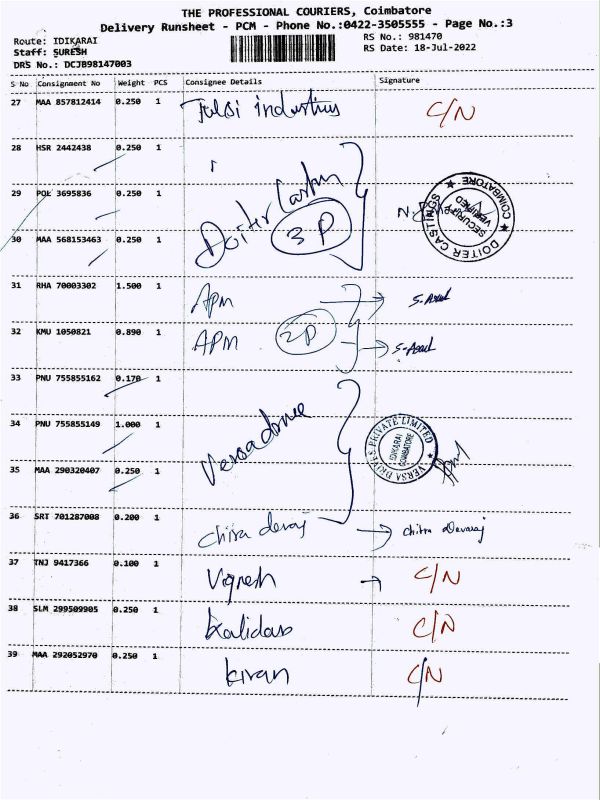 THE PROFESSIONAL COURIERS, Coimbatore
Delivery Runsheet - PCM - Phone No.:0422-3505555 - Page No.:3
Route: IDIKARAI
RS No.: 981470
Staff: SURESH
RS Date: 18-Jul-2022
DRS No.: DCJB98147003
S No Consignment No Weight PCS Consignee Details Signature
27 MAA 857812414 0.250 1 Tulsi industries C/N
28 HSR 2442438 0.250 1
29 POL 3695836 0.250 1
Doiter Casting
3P
DOITER CASTINGS COIMBATORE SECURITY VERIFIED
30 MAA 568153463 0.250 1
31 RHA 70003302 1.500 1 APM
32 KMU 1050821 0.890 1 APM 2P
33 PNU 755855162 0.170 1
34 PNU 755855149 1.000 1
VERSA DRIVES PRIVATE LIMITED IDIKARAI COIMBATORE
35 MAA 290320407 0.250 1
36 SRT 701287008 0.200 1 chitra devaj chitra Devaraj
37 TNJ 9417366 0.100 1 Vignesh C/N
38 SLM 299509905 0.250 1 Kalidas C/N
39 MAA 292052970 0.250 1 kiran C/N